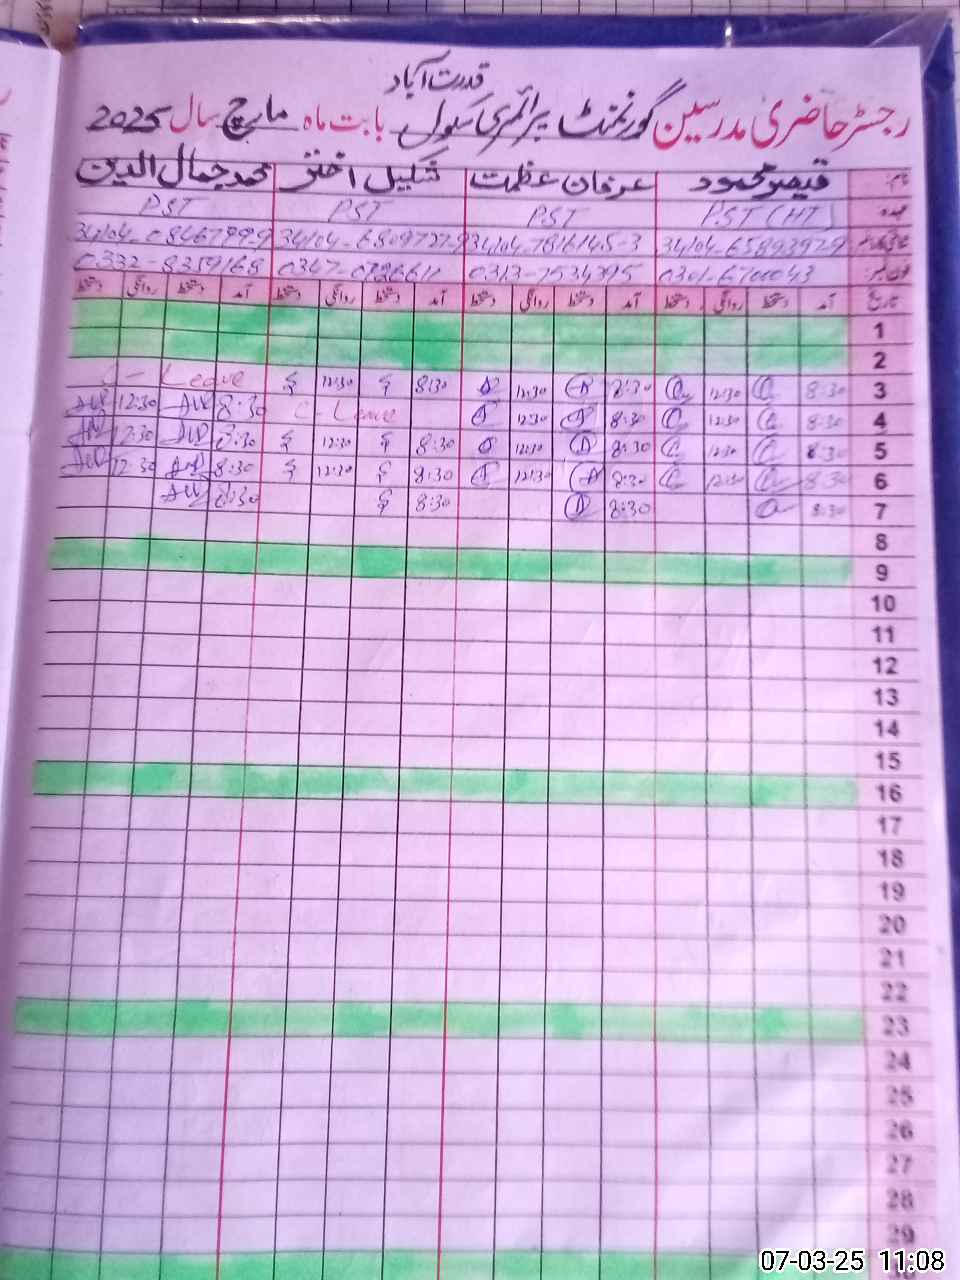 قدرت آباد
رجسٹر حاضری مدرسین گورنمنٹ پرائمری سکول بابت ماہ مارچ سال 2025
نام قیصر محمود عرفان عظمت شکیل اختر محمد جمال الدین
عہدہ PST (HT) PST PST PST
34104-6589397-9 34104-7816145-3 34104-6809727-9 34104-0846799-9
فون نمبر 0301-6701043 0313-7534395 0347-0726611 0332-8359168
تاریخ آمد دستخط روانگی دستخط آمد دستخط روانگی دستخط آمد دستخط روانگی دستخط آمد دستخط روانگی دستخط
1
2
3 8:30 12:30 8:30 12:30 8:30 12:30 C-Leave
4 8:30 12:30 8:30 12:30 C-Leave 8:30 12:30
5 8:30 12:30 8:30 12:30 8:30 12:30 8:30 12:30
6 8:30 12:30 8:30 12:30 8:30 12:30 8:30 12:30
7 8:30 8:30 8:30 8:30
8
9
10
11
12
13
14
15
16
17
18
19
20
21
22
23
24
25
26
27
28
29
07-03-25 11:08